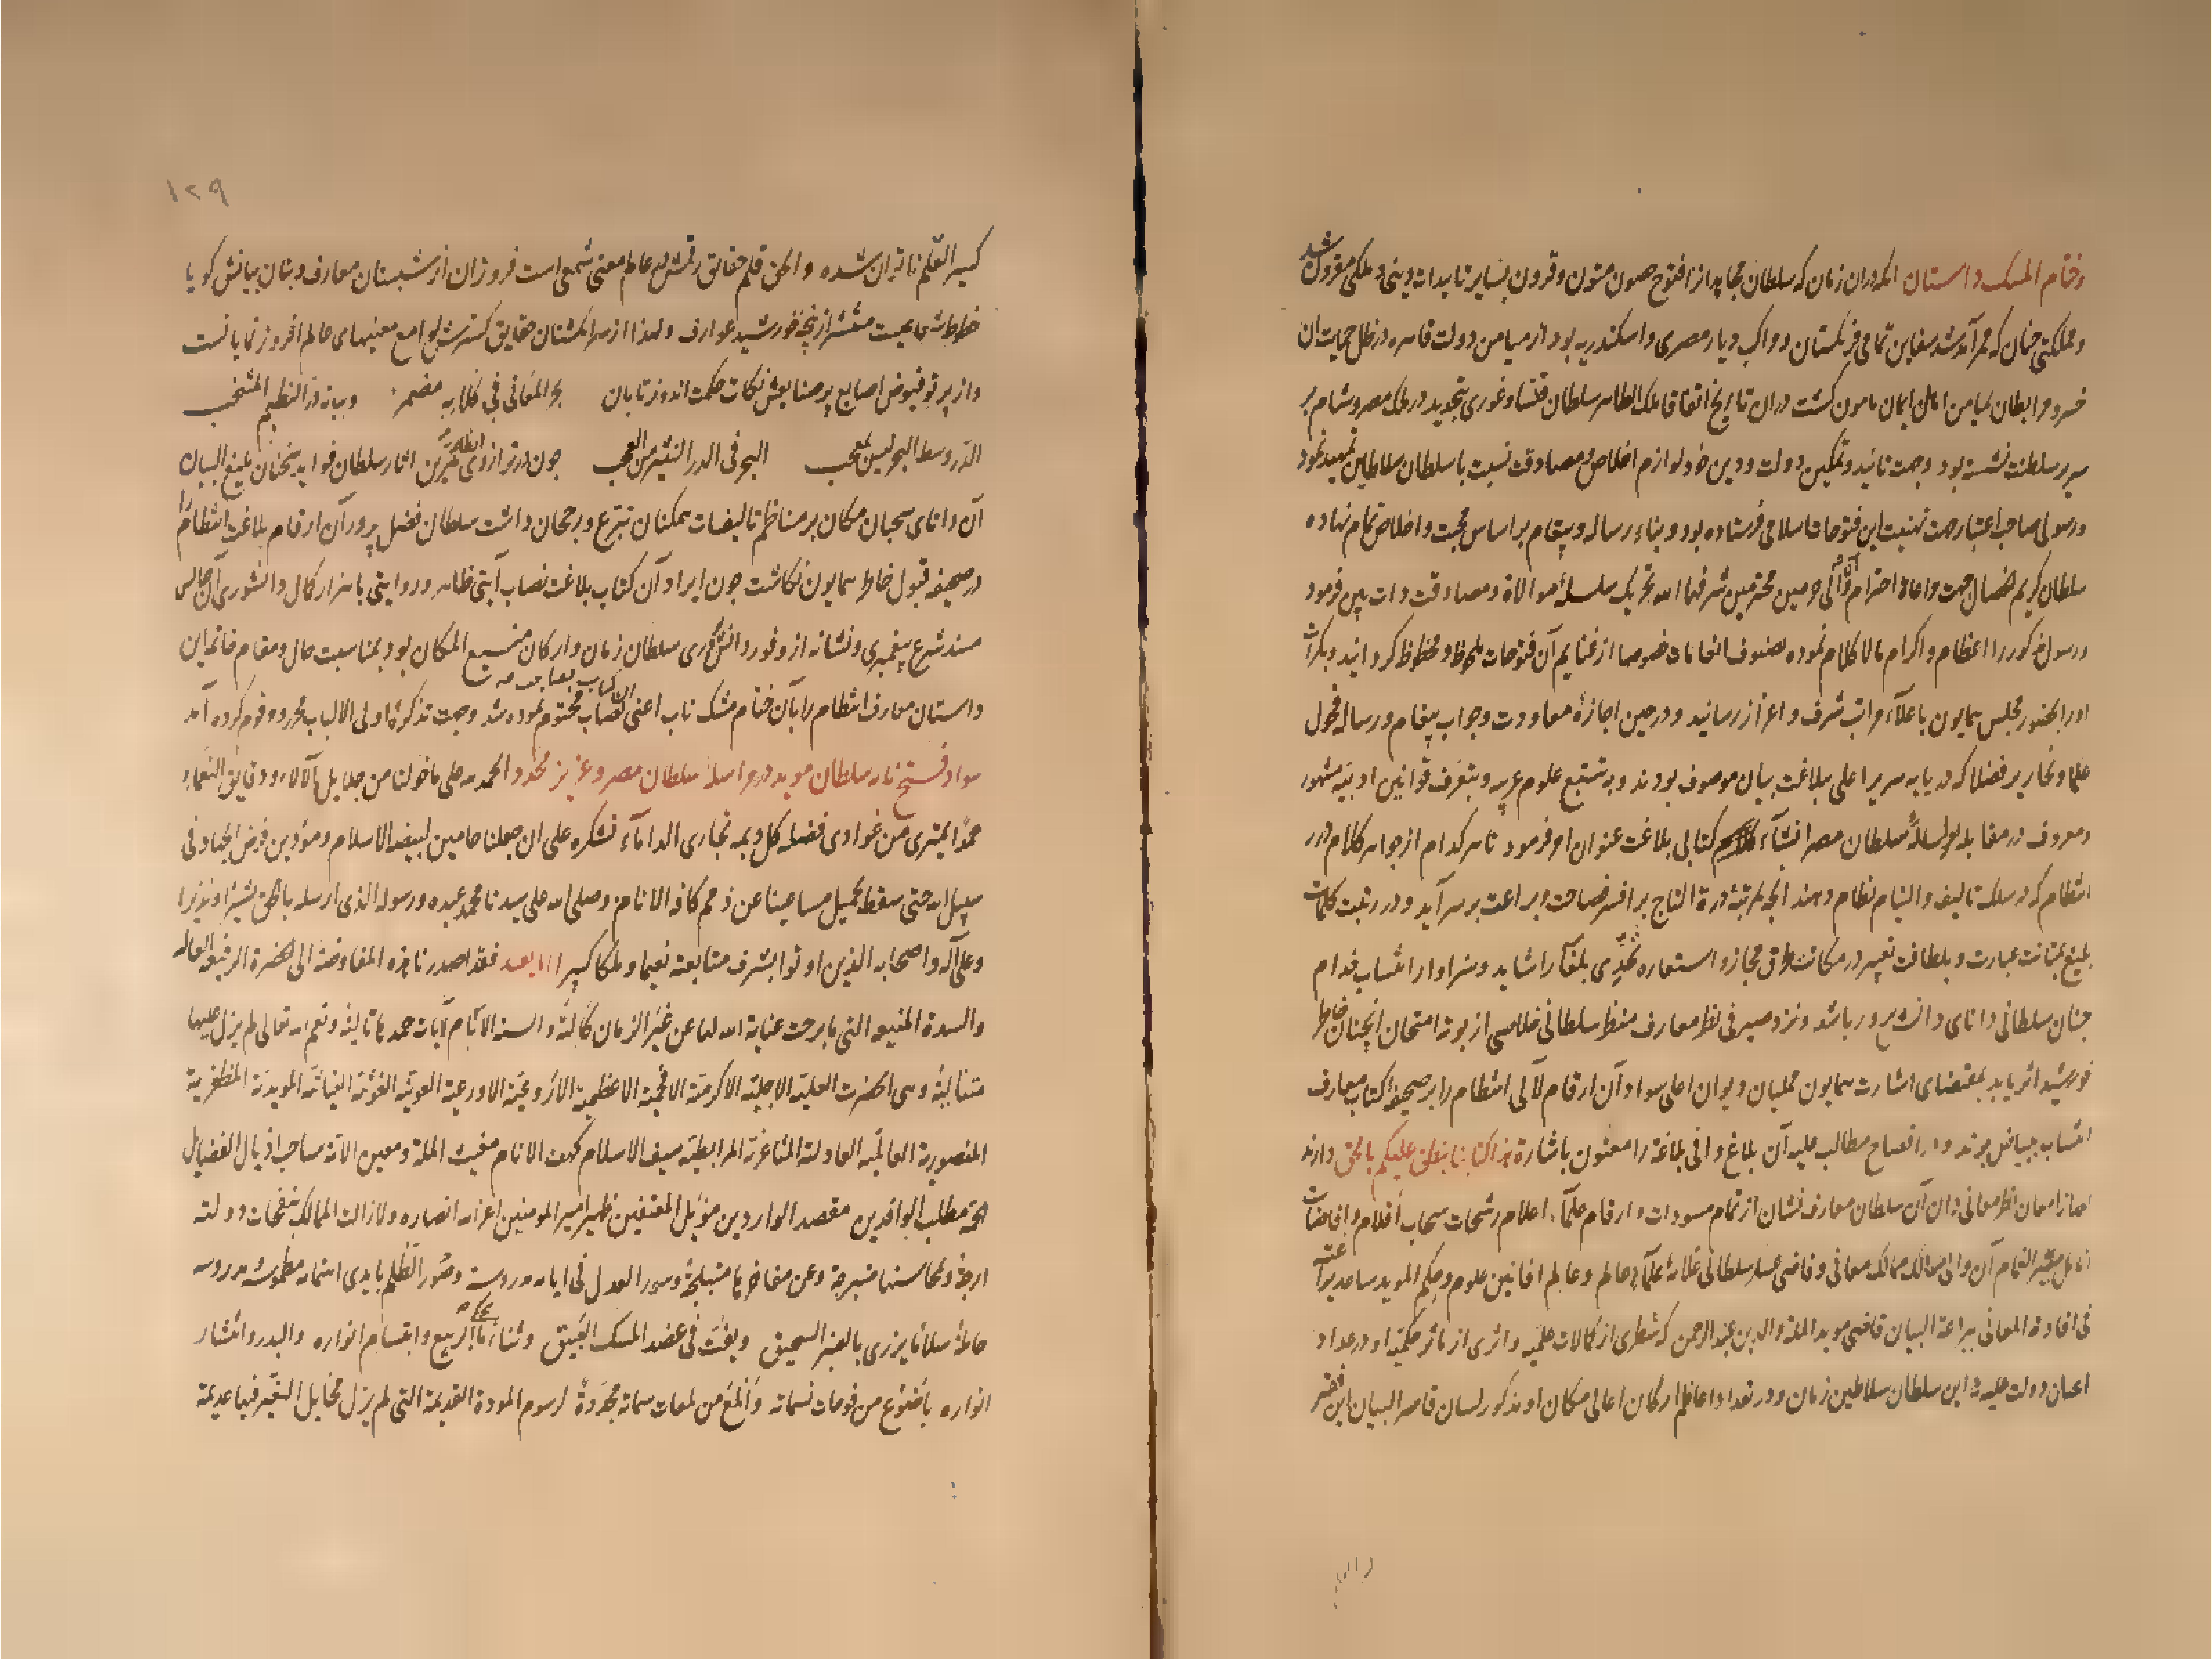 وختام المسک داستان انکه در ان زمان که سلطان مجاهد از افتوح حصون متون و قرون بسایر تاییدات دینی و ملکی مقرون شد
و مملکتی چنان که ممر آمد شد سفاین تمامی فرنکستان و واکب دیار مصری و اسکندریه بود از میامن دولت قاهره در ظل حمایت ان
خسرو مرابطان میامن اهل ایمان مامون کشت دران تاریخ اتفاقا ملک الظاهر سلطان قنسا و غوری بتجدید در ملک مصر و شام بر
سریر سلطنت نشسته بود و جهت تائید و تمکین دولت و دین خود لوازم اخلاص و مصادقت نسبت با سلطان سلاطین تمهید نمود
و رسولی صاحب اعتبار جهت تهنیت این فتوحات اسلامی فرستاده بود و بناء رساله و پیغام بر اساس محبت و اخلاص تمام نهاده
سلطان کریم خصال جهت و احترام والی حرمین محترمین شرفهما الله تحریک سلسله موالاة و مصادقت دات بین فرمود
و رسول مذکور را اعظام و اکرام مالا کلام نموده بصنوف انعامات خصوصا از غنایم آن فتوحات ملحوظ و محظوظ کردانید و بکرات
او را بحضور مجلس همایون باعلآء مراتب شرف و اعزاز رسانید و در حین اجازۀ معاودت و جواب پیغام و رساله فحول
علما و نحاریر فضلا که در پایه سریر اعلی ببلاغت بیان موصوف بودند و به تتبع علوم عربیه و بتعرف قوانین ادبیه مشهور
و معروف در مقابله مراسلۀ سلطان مصر انشآء کتابی بلاغت عنوان امر فرمود تا هر کدام از جواهر کلام درر
انتظام که در سلک تالیف و التیام نظام دهند انچه بمرتبۀ درة التاج بر افسر فصاحت و براعت بر سر آید و در رتبت کلمات
بلیغ بمتانت عبارت و بلطافت تعبیر در مکانت طرق مجاز و استعاره تحدی بلغآء را شاید و سزاوار انتساب خدام
چنان سلطانی دانای دانش پرور باشد و نزد صیرفی نظر معارف منظر سلطانی خلاصی از بوته امتحان انچنان خاطر
خورشید اثر یابد بمقتضای اشارت همایون ممليان دیوان اعلی سواد آن ارقام لآلی انتظام را بر صحیفۀ کتاب معارف
انتساب ببیاض برند و از افصاح مطالب علیه آن بلاغ وافی بلاغة را معنون باشارة هذا کتابنا ینطق علیکم بالحق دارند
بعد از امعان نظر معانی دان آن سلطان معارف نشان از تمام مسودات و ارقام علمآء اعلام رشحات سحاب اقلام و افاضات
انامل آن والی ممالک معانی و قاضی عسکر سلطانی علامۀ علمآء عالم و عالم افانین علوم و حکم الموید ساعد یراعته
فی افادة المعانی ببراعة البیان قاضی موید الملة والدین عبد الرحمن که شطری از کمالات علمیه و اثری از ماثر حکمیۀ او در عداد
اعیان دولت علیۀ این سلطان سلاطین زمان و در تعداد اعاظم ارکان اعالی مکان او مذکور لسان قاصر البیان این فقیر
١٢٩
کسیر القلم ناتوان شده و الحق قلم حقایق رقمش در عالم معنی شمعی است فروزان از شبستان معارف و بنان بیانش کویا
خطوط شعاعیست منتشر از پنجۀ خورشید عوارف و لهذا از سر انکشتان حقایق کسترش لوامع معنیهای عالم افروز نمایانست
و از پرتو فیوض اصابع پر صنایعش نکات حکمت اندوز تابان بحر المعانی فی کلامه مضمر وبیانه در النظیم المنتخب
الدر وسط البحر لیس بمعجب البحر فی الدر النثیر من العجب چون در ترازوی اثار سلطان فواید سخنان بلیغ البیان
آن دانای سحبان مکان بر مناظم تالیفات همکنان تبرع و رجحان داشت سلطان فضل پرور آن ارقام بلاغت انتظام را
در صحیفه قبول خاطر همایون نکاشت چون ایراد آن کتاب بلاغت نصاب آیتی ظاهر و روایتی باهر از کمال دانشوری آن جالس
مسند شرع پیغمبری و نشانه از وفور دانش کری سلطان زمان و ارکان منیع المکان بود بمناسبت حال و مقام خاتمه این
داستان معارف انتظام را بآن ختام مشک ناب اعنی الکتاب نصاب مختوم نموده شد و جهت تذکرۀ اولی الالباب محرر و مرقوم کرده آمد
سواد فتح نامه سلطان موید در مراسلۀ سلطان مصر و عزیز مخدود الحمد لله علی ما خولنا من جلایل الآلاء و دقایق النعمآء
حمدا یمتری من غوادی فضله کل دیمه تجاری الدامآء نشکره علی ان جعلنا حامین لبیضة الاسلام و مؤدین فرض الجهاد فی
سبیل الله حتی سقط بجمیل مساعینا عن ذمم کافة الانام وصلی الله علی سیدنا محمد عبده ورسوله الذی ارسله بالحق بشیرا ونذیرا
وعلی آله واصحابه الذین اوتوا بشرف متابعته نعیما وملکا کبیرا اما بعد فقد اصدرنا هذه المفاوضة الی الحضرة الرفیعة العالیه
والسدة المنیعه التی ما برحت عنایة الله لها عن غیر الزمان کالئة والسنة الانام لآیات حمدها تالیة ونعم الله تعالی لم یزل علیها
متتالیة وهی الحضرت العلیة الاجلیة الاکرمیة الافخمیة الاعظمیة الاروعیة الاورعیة العونیة الغوثیة الغیاثیة المویدیة المظفریة
المنصوریة العالمیه العادلیة المثاغریة المرابطیة سیف الاسلام کهف الانام مغیث الملة ومعین الامة صاحب اذیال الفضایل
مطلب الوافدین مقصد الواردین مؤیل المعتفین ظهیر امیر المومنین اعز الله انصاره ولا زالت الممالک بنفحات دولته
ارجة وبمحاسنها متبرجة وعن مفاخرها متبلجة وسور العدل فی ایامه مدروسة وصور الظلم بایدی اهتمامه مطموسة مدروسه
حاملة سلاما یزری بالعنبر السحیق ویفت فی عضد المسک الفتیق وثناء ما الربیع وابتسام انواره والبدر وانتشار
انواره باضوع من فوحات نسماته والمع من لمعات سماته مجددة لرسوم المودة القدیمة التی لم یزل مخایل التغیر فیها عدیمة